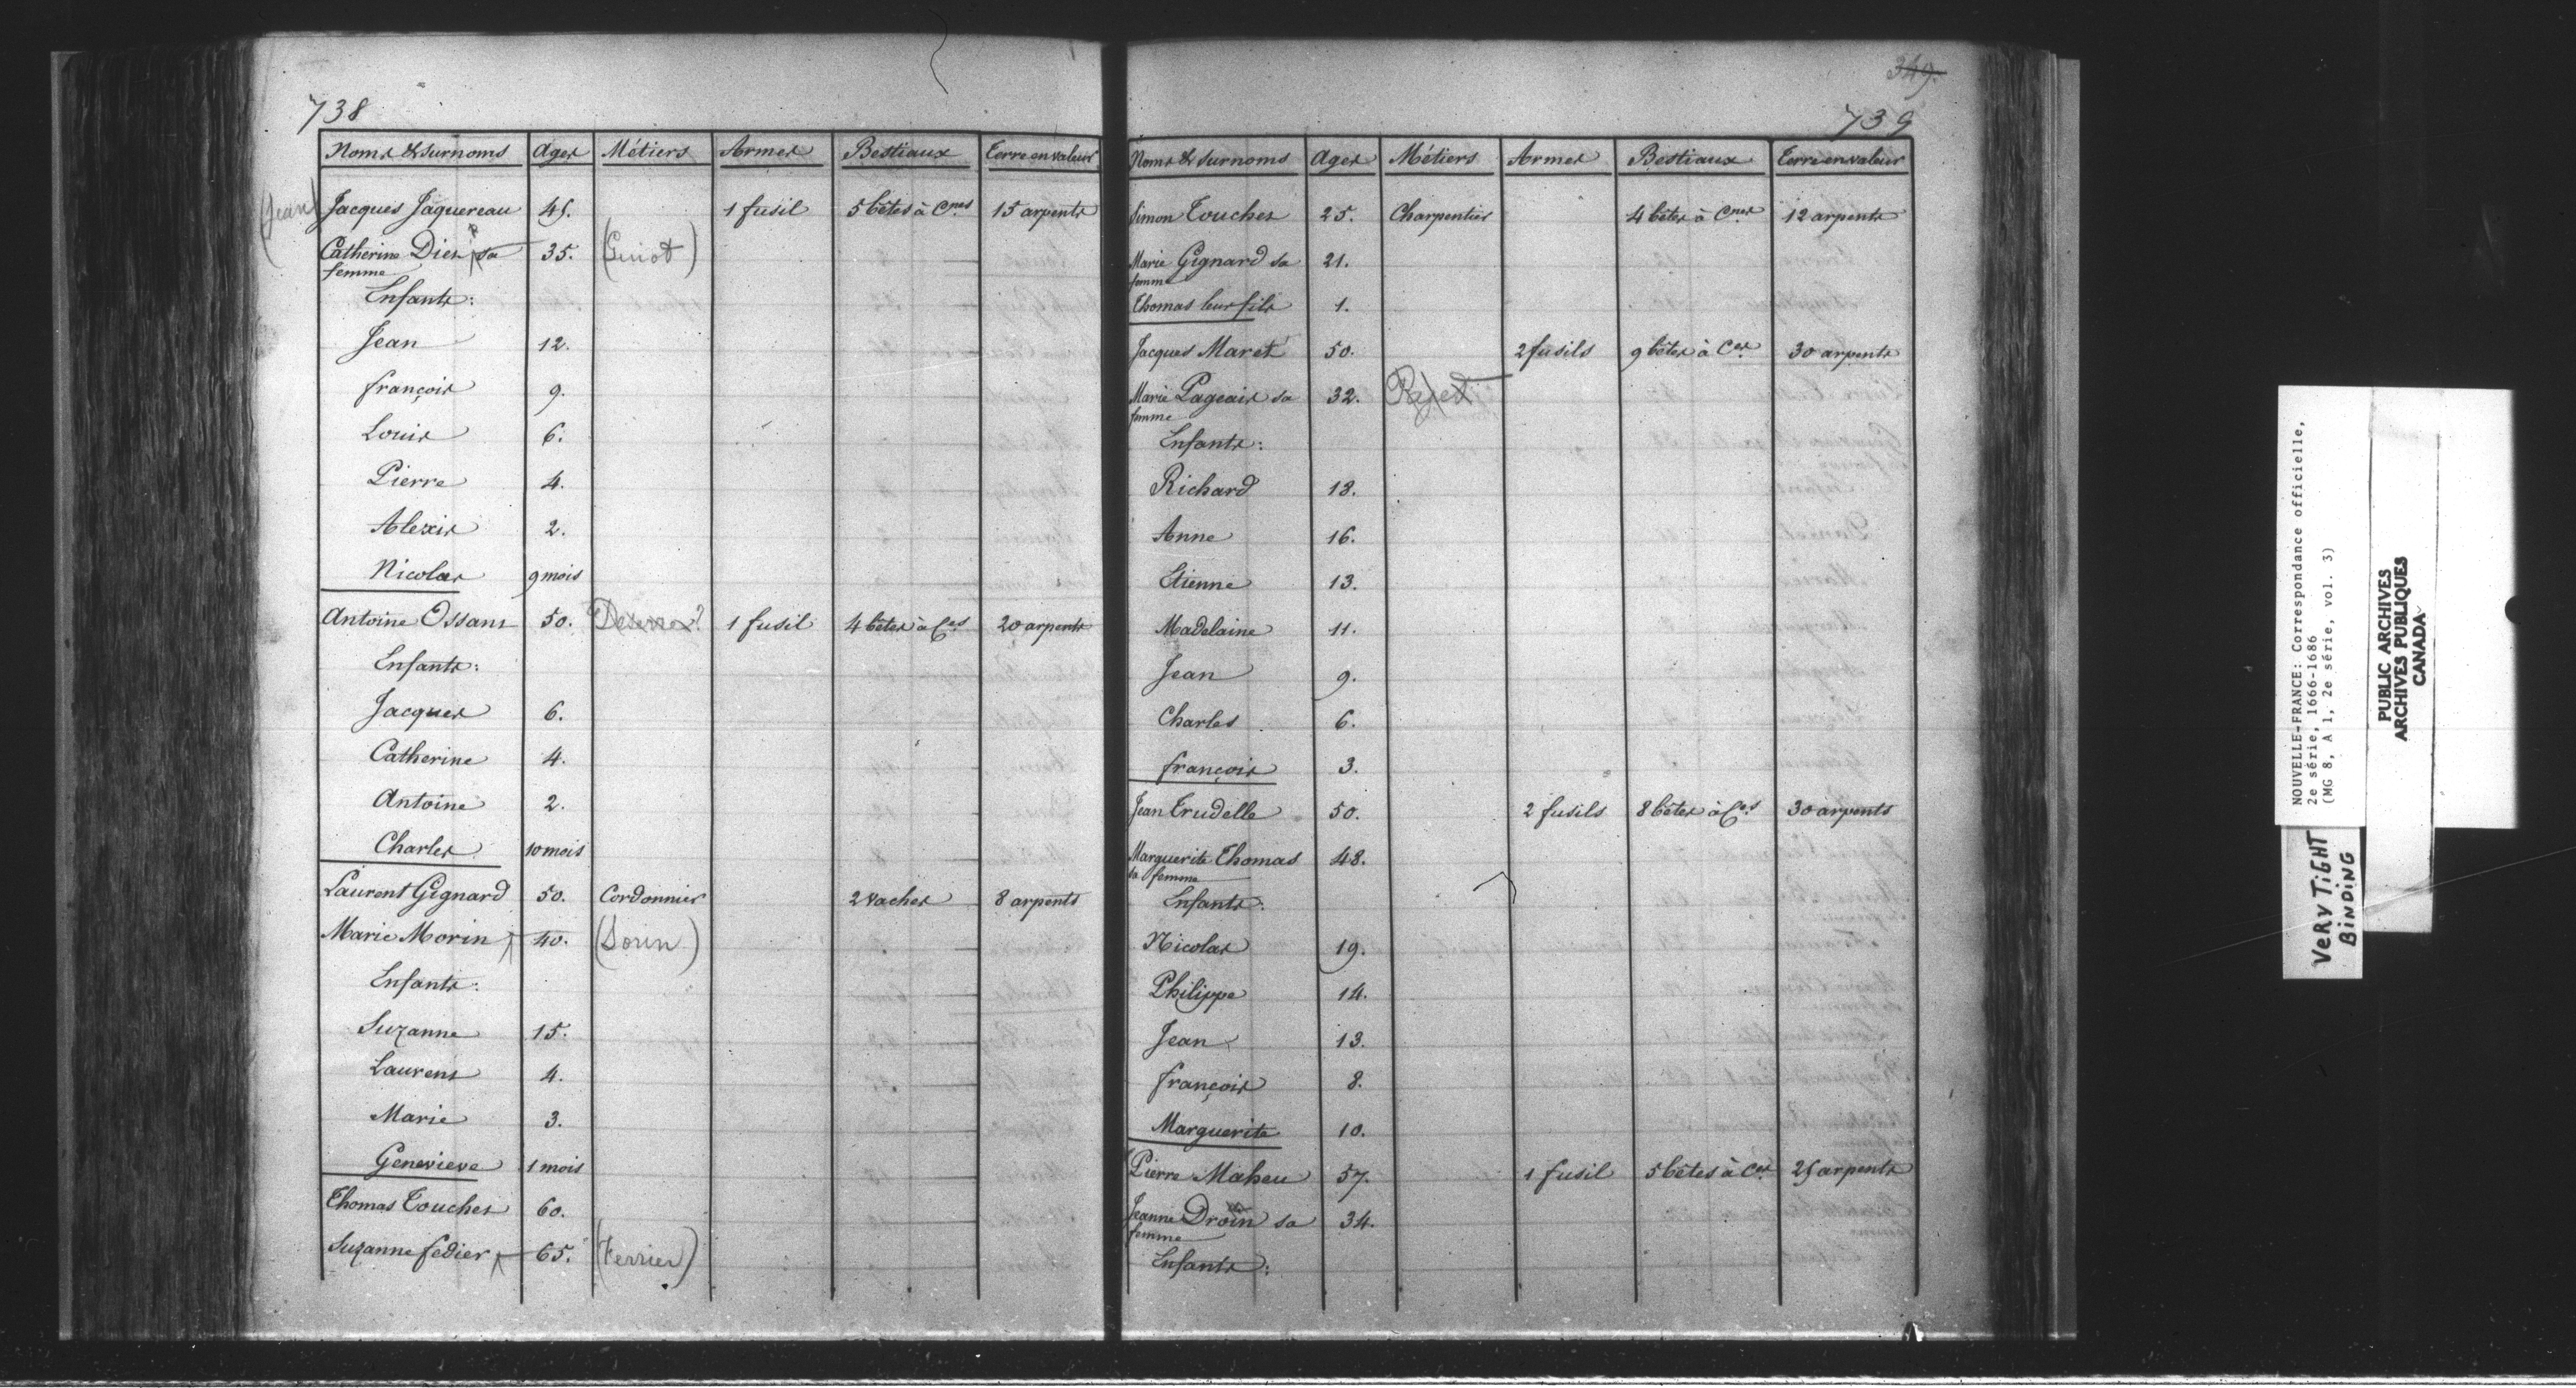 738
Noms & surnoms Ages Métiers Armes Bestiaux Terre en valeur
(Jean) Jacques Jaquereau 45. 1 fusil 5 bêtes à Cnes 15 arpents
Catherine Dien sa 35. (Guiot)
femme
Enfants:
Jean 12.
françois 9.
Louis 6.
Pierre 4.
Alexis 2.
Nicolas 9 mois
Antoine Ossans 50. 1 fusil 4 bêtes à Ces 20 arpents
Enfants:
Jacques 6.
Catherine 4.
Antoine 2.
Charles 10 mois
Laurent Gignard 50. Cordonnier 2 vaches 8 arpents
Marie Morin 40. (Sorin)
Enfants:
Suzanne 15.
Laurens 4.
Marie 3.
Genevieve 1 mois
Thomas Touches 60.
Suzanne fedier 65. (Ferrier)
349.
739
Noms & surnoms Ages Métiers Armes Bestiaux Terre en valeur
Simon Touches 25. Charpentier 4 bêtes à Cnes 12 arpents
Marie Gignard sa 21.
femme
Thomas leur fils 1.
Jacques Maret 50. 2 fusils 9 bêtes à Ces 30 arpents
Marie Pageais sa 32. Pajet
femme
Enfants:
Richard 18.
Anne 16.
Etienne 13.
Madelaine 11.
Jean 9.
Charles 6.
françois 3.
Jean Trudelle 50. 2 fusils 8 bêtes à Ces 30 arpents
Marguerite Thomas 48.
sa femme
Enfants:
Nicolas 19.
Philippe 14.
Jean 13.
françois 8.
Marguerite 10.
Pierre Maheu 57. 1 fusil 5 bêtes à Ces 25 arpents
Jeanne Droin sa 34.
femme
Enfants:
NOUVELLE-FRANCE: Correspondance officielle,
2e série, 1666-1686
(MG 8, A 1, 2e série, vol. 3)
PUBLIC ARCHIVES
ARCHIVES PUBLIQUES
CANADA
VERY TIGHT
BINDING